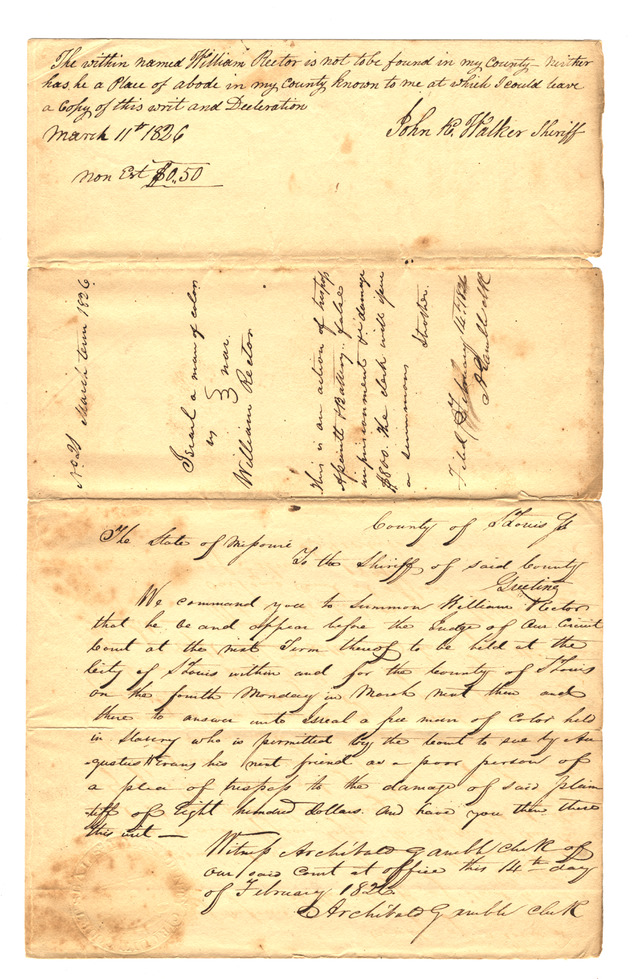 The within named William Rector is not to be found in my County – Neither
has he a Place of abode in my County known to me at which I could leave
a Copy of this writ and Decleration
March 11th 1826
John K. Walker Sheriff
non Est $0.50
No. 21 March term 1826
Israel a man of color
vs nar
William Rector
this is an action of trespass
assault & Battery & false
imprisonment & damage
$800. the clerk will issue
a summons Strother
Filed February 14th 1826
A Gamble Clk
County of St Louis Ss
The State of Missouri
To the Sheriff of said County
Greeting
We command you to Summon William Rector
that he be and appear before the Judge of Our Circuit
Court at the next Term thereof to be held at the
City of St Louis within and for the County of St Louis
on the fourth Monday in March next then and
there to answer unto Isreal a free man of Color held
in Slavery who is permitted by the Court to sue by Au
gustus his next friend as a poor person of
a plea of trespass to the damage of said plain
tiff of Eight hundred dollars. And have you then there
this writ —
Witness Archibald Gamble clerk of
our said Court at office this 14th day
of February 1826
Archibald Gamble clerk